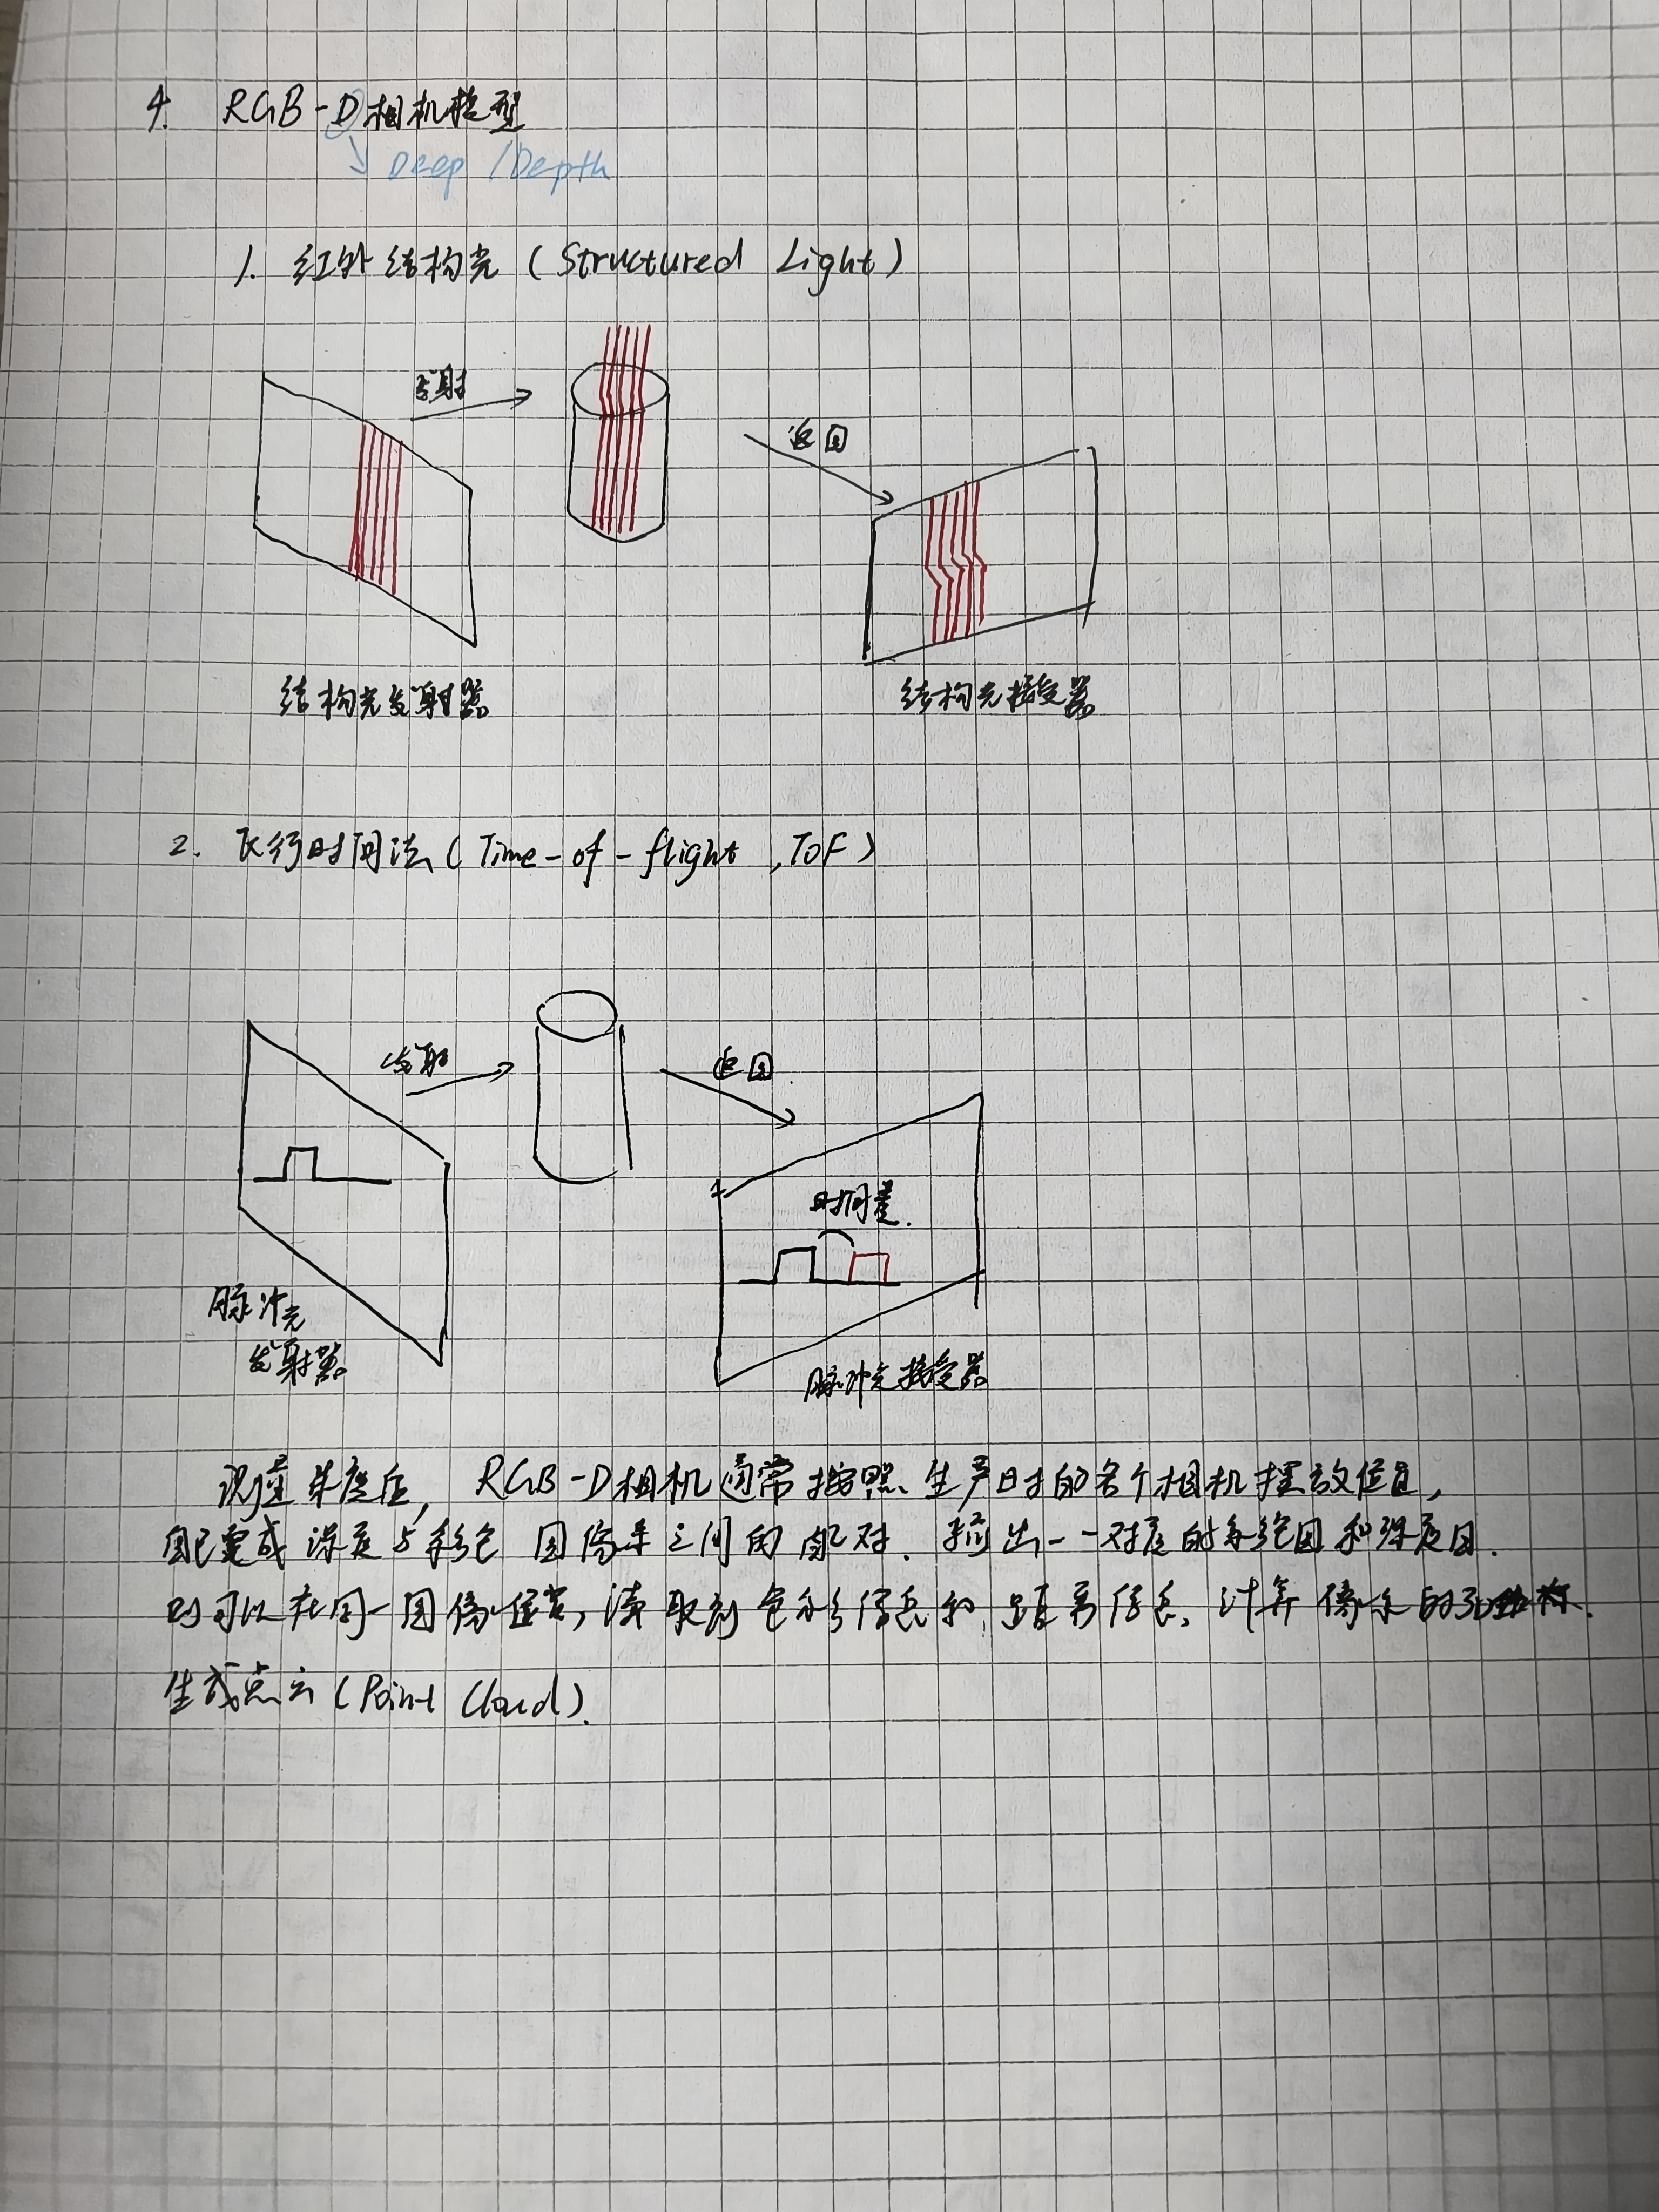 4. RGB-D相机模型
Deep / Depth
1. 红外结构光 (Structured Light)
发射
返回
结构光发射器
结构光接受器
2. 飞行时间法 (Time-of-flight, ToF)
发射
返回
时间差.
脉冲光
发射器
脉冲光接受器
测量深度后, RGB-D相机通常按照生产时的各个相机摆放位置,
完成深度与彩色图像素之间的配对. 输出一一对应的彩色图和深度图.
则可以在同一图像位置, 读取到色彩信息和距离信息, 计算像素的3D坐标.
生成点云 (Point Cloud).